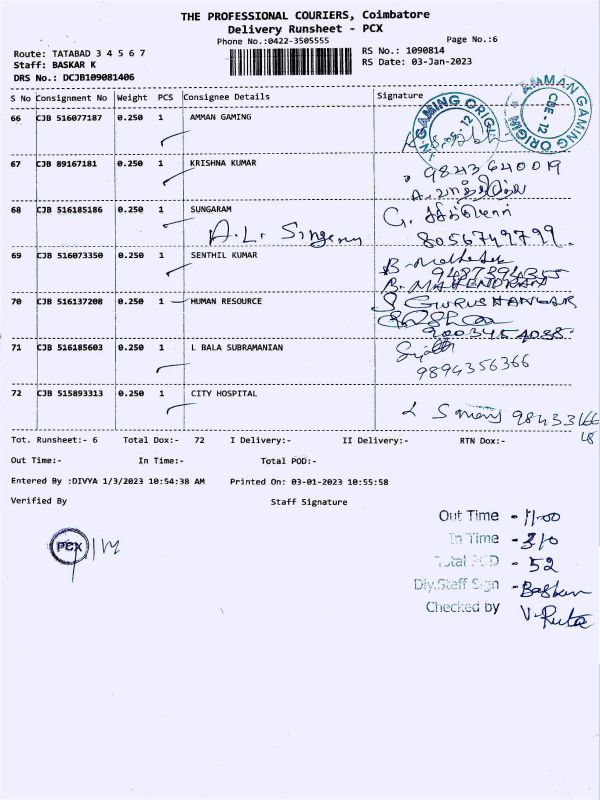 THE PROFESSIONAL COURIERS, Coimbatore
Delivery Runsheet - PCX
Phone No.:0422-3505555
Page No.:6
Route: TATABAD 3 4 5 6 7
RS No.: 1090814
Staff: BASKAR K
RS Date: 03-Jan-2023
DRS No.: DCJB109081406
S No Consignment No Weight PCS Consignee Details Signature
66 CJB 516077187 0.250 1 AMMAN GAMING
AMMAN GAMING ORIGIN
CBE - 12
67 CJB 89167181 0.250 1 KRISHNA KUMAR 9843640019
68 CJB 516185186 0.250 1 SUNGARAM
A.L. 8056749799
69 CJB 516073350 0.250 1 SENTHIL KUMAR
9487394355
B. MAHENDRAN
70 CJB 516137208 0.250 1 HUMAN RESOURCE
71 CJB 516185603 0.250 1 L BALA SUBRAMANIAN
9894356366
72 CJB 515893313 0.250 1 CITY HOSPITAL
Tot. Runsheet:- 6 Total Dox:- 72 I Delivery:- II Delivery:- RTN Dox:-
Out Time:- In Time:- Total POD:-
Entered By :DIVYA 1/3/2023 10:54:38 AM Printed On: 03-01-2023 10:55:58
Verified By Staff Signature
Out Time - 11-00
In Time - 310
PCX
Total POD - 52
Dly.Staff Sign - Baskar
Checked by